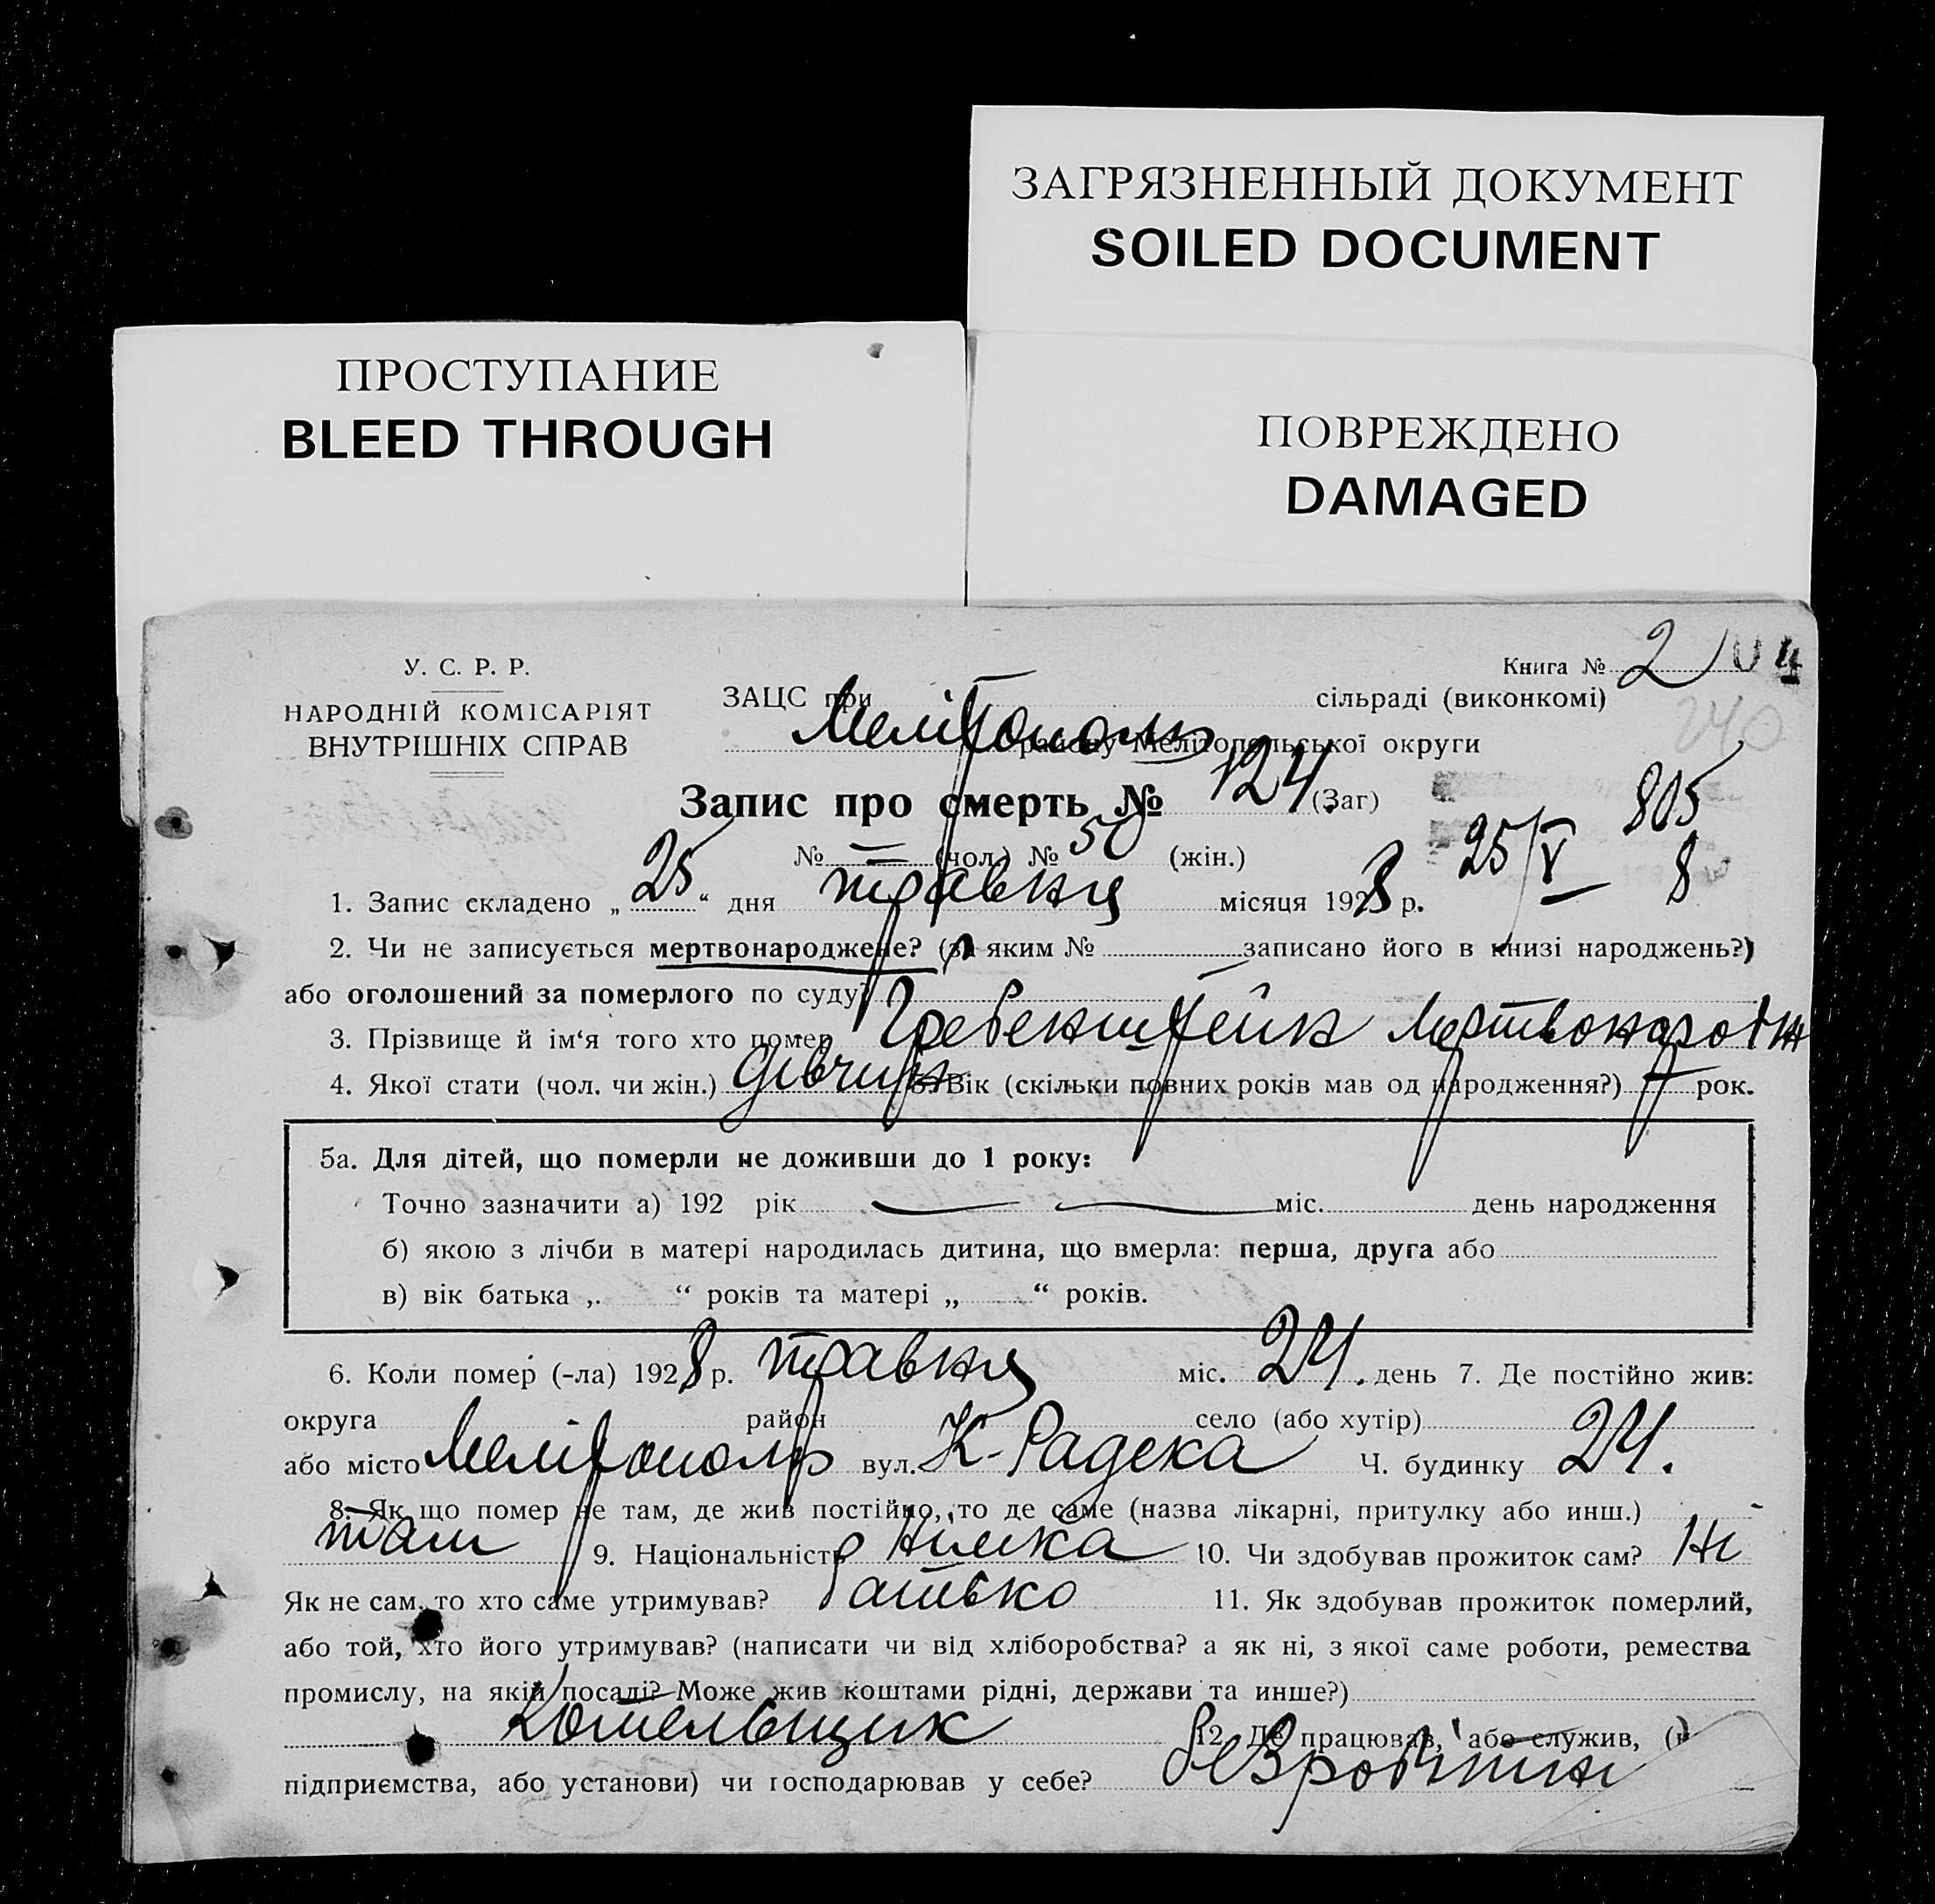 ЗАГРЯЗНЕННЫЙ ДОКУМЕНТ
SOILED DOCUMENT
ПРОСТУПАНИЕ
BLEED THROUGH
ПОВРЕЖДЕНО
DAMAGED
У. С. Р. Р.
НАРОДНІЙ КОМІСАРІЯТ
ВНУТРІШНІХ СПРАВ
Книга № 2
ЗАЦС при сільраді (виконкомі)
240
Мелітополь району Мелітопольської округи
Запис про смерть № 124 (Заг)
805
№ — (чол.) № 50 (жін.)
25/V 8
1. Запис складено „ 25 “ дня травня місяця 1928 р.
2. Чи не записується мертвонароджене? (за яким № записано його в книзі народжень?)
або оголошений за померлого по суду?
3. Прізвище й ім‘я того хто помер Гребенштейн
4. Якої стати (чол. чи жін.) дівчина 5. Вік (скільки повних років мав од народження?) рок.
5а. Для дітей, що померли не доживши до 1 року:
Точно зазначити а) 192 рік — — міс. день народження
б) якою з лічби в матері народилась дитина, що вмерла: перша, друга або
в) вік батька „ “ років та матері „ “ років.
6. Коли помер (-ла) 1928 р. травня міс. 24. день 7. Де постійно жив:
округа район село (або хутір)
або місто Мелітополь вул. К-Радека Ч. будинку 24.
8. Як що помер не там, де жив постійно, то де саме (назва лікарні, притулку або инш.)
там 9. Національність німка 10. Чи здобував прожиток сам? Ні
Як не сам, то хто саме утримував? батько 11. Як здобував прожиток померлий,
або той, хто його утримував? (написати чи від хліборобства? а як ні, з якої саме роботи, ремества
промислу, на якій посаді? Може жив коштами рідні, держави та инше?)
Котельщик 12. Де працював, або служив, (н
підприємства, або установи) чи господарював у себе? безробітний